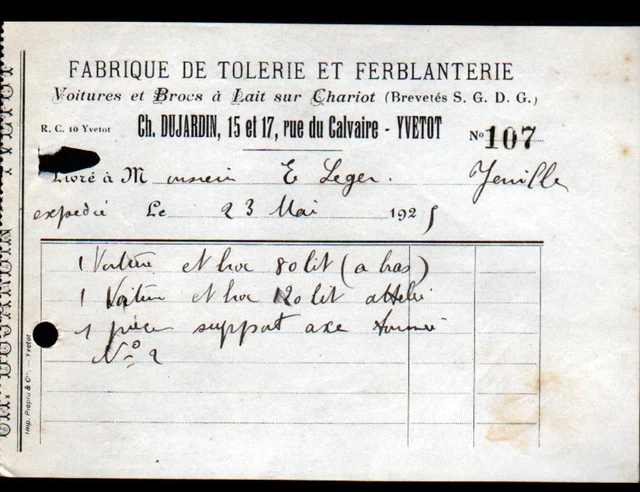 FABRIQUE DE TOLERIE ET FERBLANTERIE
Voitures et Brocs à Lait sur Chariot (Brevetés S. G. D. G.)
R. C. 10 Yvetot
Ch. DUJARDIN, 15 et 17, rue du Calvaire - YVETOT
No 107
Livré à Monsieur E Leger.
expedié Le 23 Mai 1925
1 Voiture et broc 80 lit (a bras)
1 Voiture et broc 120 lit attelée
1 pièce support axe tournée
No 2
Imp. Prépru & Cie Yvetot
CH. DUJARDIN YVETOT